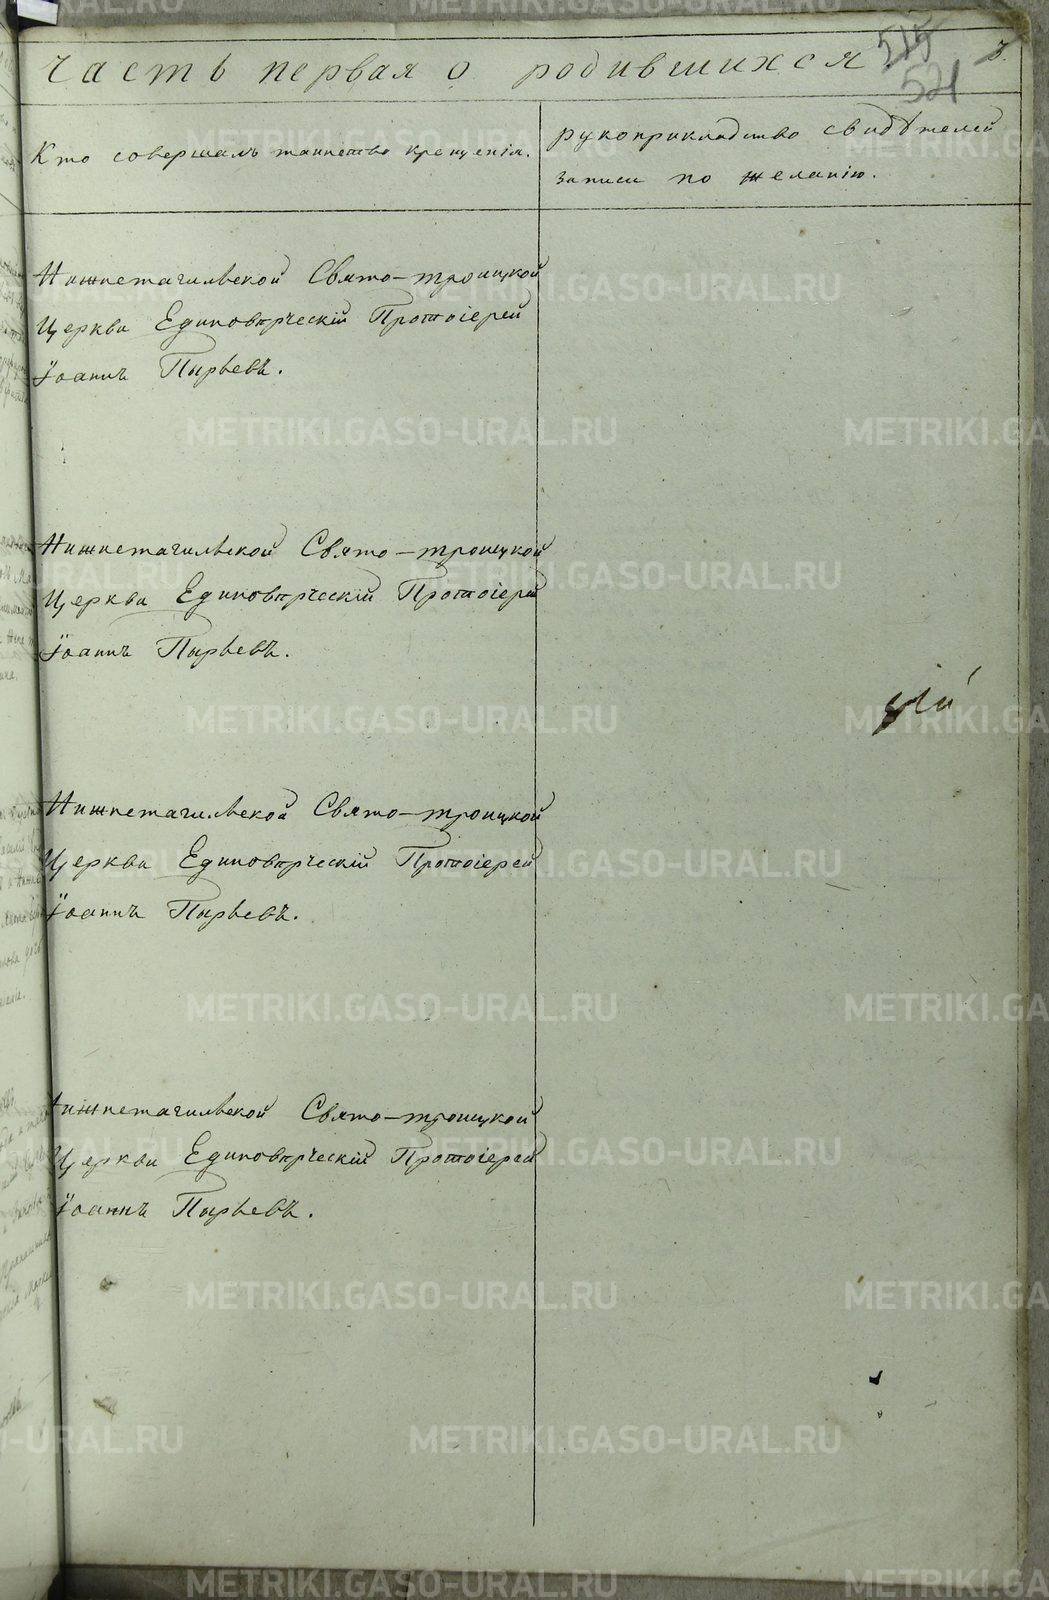 Часть первая о родившихся.
515
521
Кто совершалъ таинство крещенія.
рукоприкладство свидѣтелей
записи по желанію.
Нижнетагильской Свято-троицкой
Церкви Единовѣрческій Протоіерей
Іоаннъ Пырьевъ.
Нижнетагильской Свято-троицкой
Церкви Единовѣрческій Протоіерей
Іоаннъ Пырьевъ.
Нижнетагильской Свято-троицкой
Церкви Единовѣрческій Протоіерей
Іоаннъ Пырьевъ.
Нижнетагильской Свято-троицкой
Церкви Единовѣрческій Протоіерей
Іоаннъ Пырьевъ.
METRIKI.GASO-URAL.RU